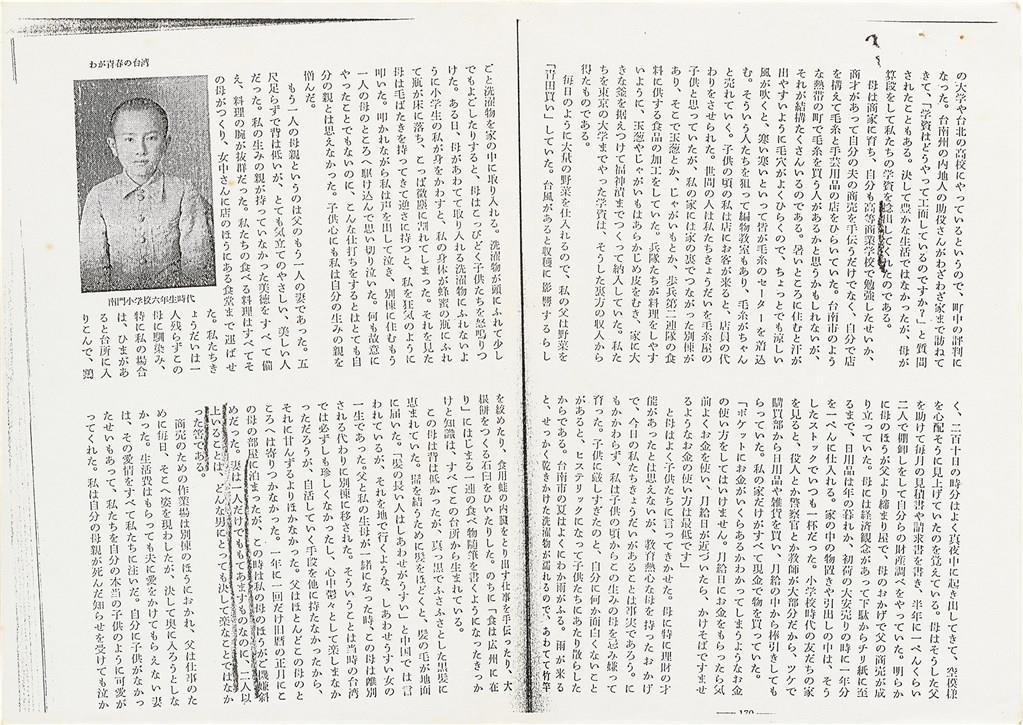 の大学や台北の高校にやっているというので、町中の評判に
なった。台南州の内地人の助役さんがわざわざ家まで訪ねて
きて、「学資はどうやって工面しているのですか?」と質問
されたこともある。決して豊かな生活ではなかったが、母が
算段をして私たちの学資を捻出してくれたのである。
母は商家に育ち、自分も高等商業学校で勉強したせいか、
商才があって自分の夫の商売を手伝うだけでなく、自分で店
を構えて毛糸と手芸用品の店をひらいていた。台南市のよう
な熱帯の町で毛糸を買う人があるかと思うかもしれないが、
それが結構たくさんいるのである。暑いところに住むと汗が
出やすいように毛穴がよくひらくので、ちょっとでも涼しい
風が吹くと、寒い寒いといって皆が毛糸のセーターを着込
む。そういう人たちを狙って編物教室もあり、毛糸がちゃん
と売れていく。子供の頃の私は店にお客が来ると、店員の代
わりをさせられた。世間の人は私たちきょうだいを毛糸屋の
子供と思っていたが、私の家には家の裏でつながった別棟が
あり、そこで玉葱とか、じゃがいもとか、歩兵第二連隊の食
料に供する食品の加工をしていた。兵隊たちが料理をしやす
いように、玉葱やじゃがいもはあらかじめ皮をむき、家に大
きな釜を据えつけて福神漬までつくって納入していた。私た
ちを東京の大学までやった学資は、そうした裏方の収入から
得たものである。
毎日のように大量の野菜を仕入れるので、私の父は野菜を
「青田買い」していた。台風があると収穫に影響する
く、二百十日の時分はよく真夜中に起き出してきて、空模様
を心配そうに見上げていたのを覚えている。母はそうした父
を助けて毎月の見積書や請求書を書き、半年に一ぺんくらい
二人で棚卸しをして自分らの財産調べをやっていた。明らか
に母のほうが父より締まり屋で、母のおかげで父の商売が成
り立っていた。母には経済観念があって下駄からチリ紙に至
るまで、日用品は年の暮れか、初荷の大安売りの時に一年分
を一ぺんに仕入れる。家の中の物置きや引出しの中は、そう
したストックでいつも一杯だった。小学校時代の友だちの家
を見ると、役人とか警察官とか教師が大部分だから、ツケで
購買部から日用品や雑貨を買い、月給の中から棒引きしても
らっていた。私の家だけがすべて現金で物を買っていた。
「ポケットにお金がいくらあるかわかってしまうようなお金
の使い方をしてはいけません。月給日にお金をもらったら気
前よくお金を使い、月給日が近づいたら、かけそばですませ
るようなお金の使い方は最低です」
と母はよく子供たちに言ってきかせた。母に特に理財の才
能があったとは思えないが、教育熱心な母を持ったおかげ
で、今日の私たちきょうだいがあることは事実であろう。に
もかかわらず、私は子供の頃からこの生みの母を忌み嫌って
育った。子供に厳しすぎたのと、自分に何か面白くないこと
があると、ヒステリックになって子供たちにあたり散らした
からである。台南市の夏はよくにわか雨がふる。雨が来る
と、せっかく乾きかけた洗濯物が濡れるので、あわてて竹竿
わが青春の台湾
ごと洗濯物を家の中に取り入れる。洗濯物が頭にふれて少し
でもよごしたりすると、母はこっぴどく子供たちを怒鳴りつ
けた。ある日、母があわてて取り入れる洗濯物にふれないよ
うに小学生の私が身をかわすと、私の身体が蜂蜜の瓶にふれ
て瓶が床に落ち、こっぱ微塵に割れてしまった。それを見た
母は毛ばたきを持ってきて逆さに持つと、私を狂気のように
叩いた。叩かれながら私は声を出して泣き、別棟に住むもう
一人の母のところへ駆け込んで思い切り泣いた。何も故意に
やったことでもないのに、こんな仕打ちをするとはとても自
分の親とは思えなかった。子供心にも私は自分の生みの親を
憎んだ。
もう一人の母親というのは父のもう一人の妻であった。五
尺足らずで背は低いが、とても気立てのやさしい、美しい人
だった。私の生みの親が持っていなかった美徳をすべて備
え、料理の腕が抜群だった。私たちの食べる料理はすべてそ
の母がつくり、女中さんに店のほうにある食堂まで運ばせ
た。私たちき
ょうだいは一
人残らずこの
母に馴染み、
特に私の場合
は、ひまがあ
ると台所に入
りこんで、鶏
南門小学校六年生時代
を絞めたり、食用蛙の内臓をとり出す仕事を手伝ったり、大
根餅をつくる石臼をひいたりした。のちに『食は広州に在
り』にはじまる一連の食べ物随筆を書くようになったきっか
けと知識は、すべてこの台所から生まれている。
この母は背は低かったが、真っ黒でふさふさとした黒髪に
恵まれていた。髷を結うために髪をほどくと、髪の毛が地面
に届いた。「髪の長い人はしあわせがうすい」と中国では言
われているが、それを地で行くような、しあわせうすい女の
一生であった。父と私の生母が一緒になった時、この母は離別
される代わりに別棟に移された。そういうことは当時の台湾
では必ずしも珍しくなかったし、心中鬱々として楽しまなか
っただろうが、自活していく手段を他に持たなかったから、
それに甘んずるよりほかなかった。父はほとんどこの母のと
ころへは寄りつかなかった。一年に一回だけ旧暦の正月にこ
の母の部屋に泊まったが、この時は私の母のほうがご機嫌斜
めだった。妻は一人だけでももてあますものなのに、二人以
上いることは、どんな男にとっても決して楽なことではなか
った筈である。
商売のための作業場は別棟のほうにおかれ、父は仕事のた
めに毎日、そこへ姿を現わしたが、決して奥に入ろうとしな
かった。生活費はもらっても夫に愛をかけてもらえない妻
は、その愛情をすべて私たちに注いだ。自分に子供がなかっ
たせいもあって、私たちを自分の本当の子供のように可愛が
ってくれた。私は自分の母親が死んだ知らせを受けても泣か
170